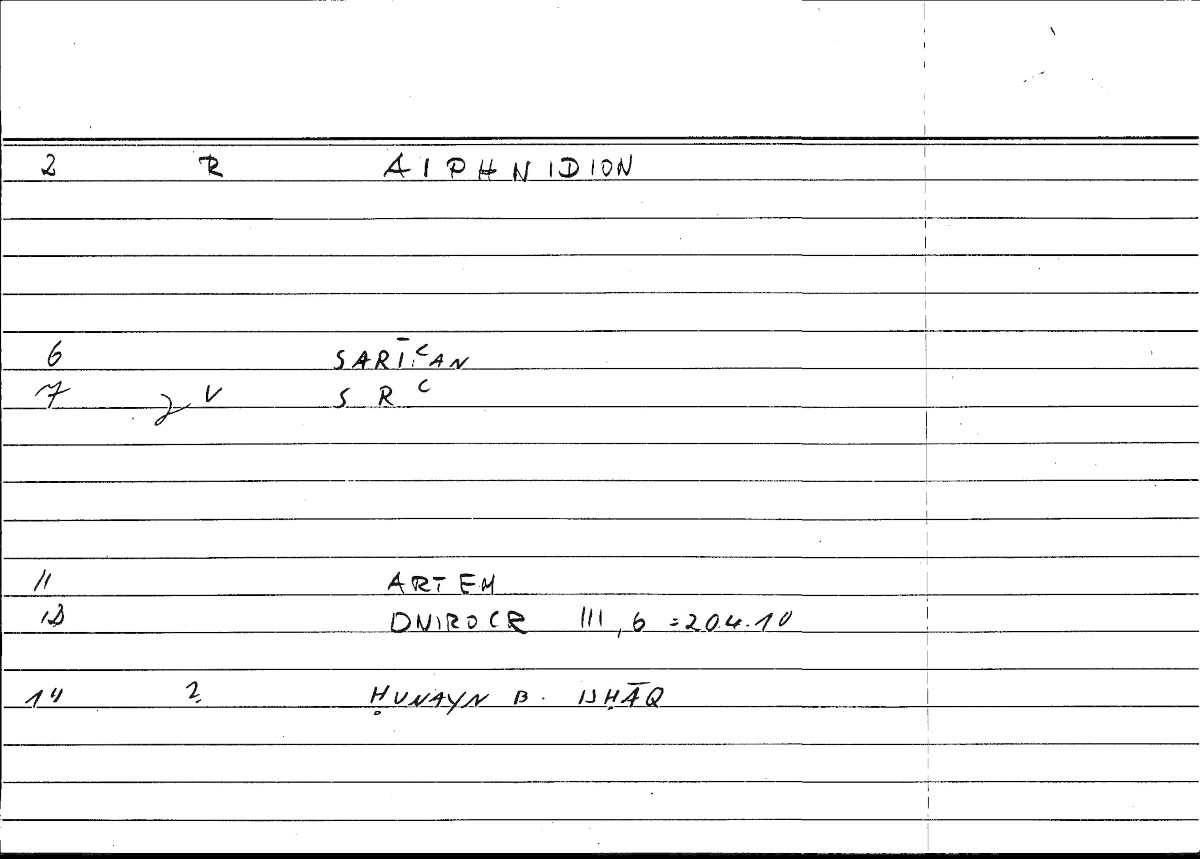 2 R AIPHNIDION
6 SARĪʿAN
7 V S R ʿ
11 ARTEM
12 ONIROCR III, 6 = 204.10
14 2. ḤUNAYN B. ISḤĀQ